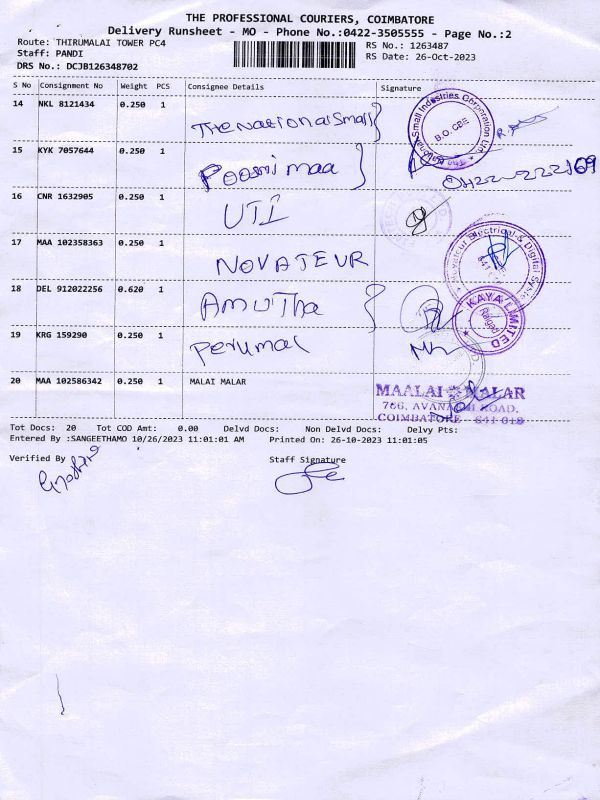 THE PROFESSIONAL COURIERS, COIMBATORE
Delivery Runsheet - MO - Phone No.:0422-3505555 - Page No.:2
Route: THIRUMALAI TOWER PC4
RS No.: 1263487
Staff: PANDI
RS Date: 26-Oct-2023
DRS No.: DCJB126348702
S No Consignment No Weight PCS Consignee Details Signature
14 NKL 8121434 0.250 1 The National Small
National Small Industries Corporation Ltd.
B.O. CBE
15 KYK 7057644 0.250 1 Poosni maa
16 CNR 1632905 0.250 1 UTI
17 MAA 102358363 0.250 1 NOVATEUR
Novateur Electrical & Digital Syste
641
18 DEL 912022256 0.620 1 AmuTha
KAYA LIMITED
19 KRG 159290 0.250 1 Perumal
20 MAA 102586342 0.250 1 MALAI MALAR
MAALAI MALAR
786, AVANASHI ROAD,
COIMBATORE - 641 018
Tot Docs: 20 Tot COD Amt: 0.00 Delvd Docs: Non Delvd Docs: Delvy Pts:
Entered By :SANGEETHAMO 10/26/2023 11:01:01 AM Printed On: 26-10-2023 11:01:05
Verified By Staff Signature